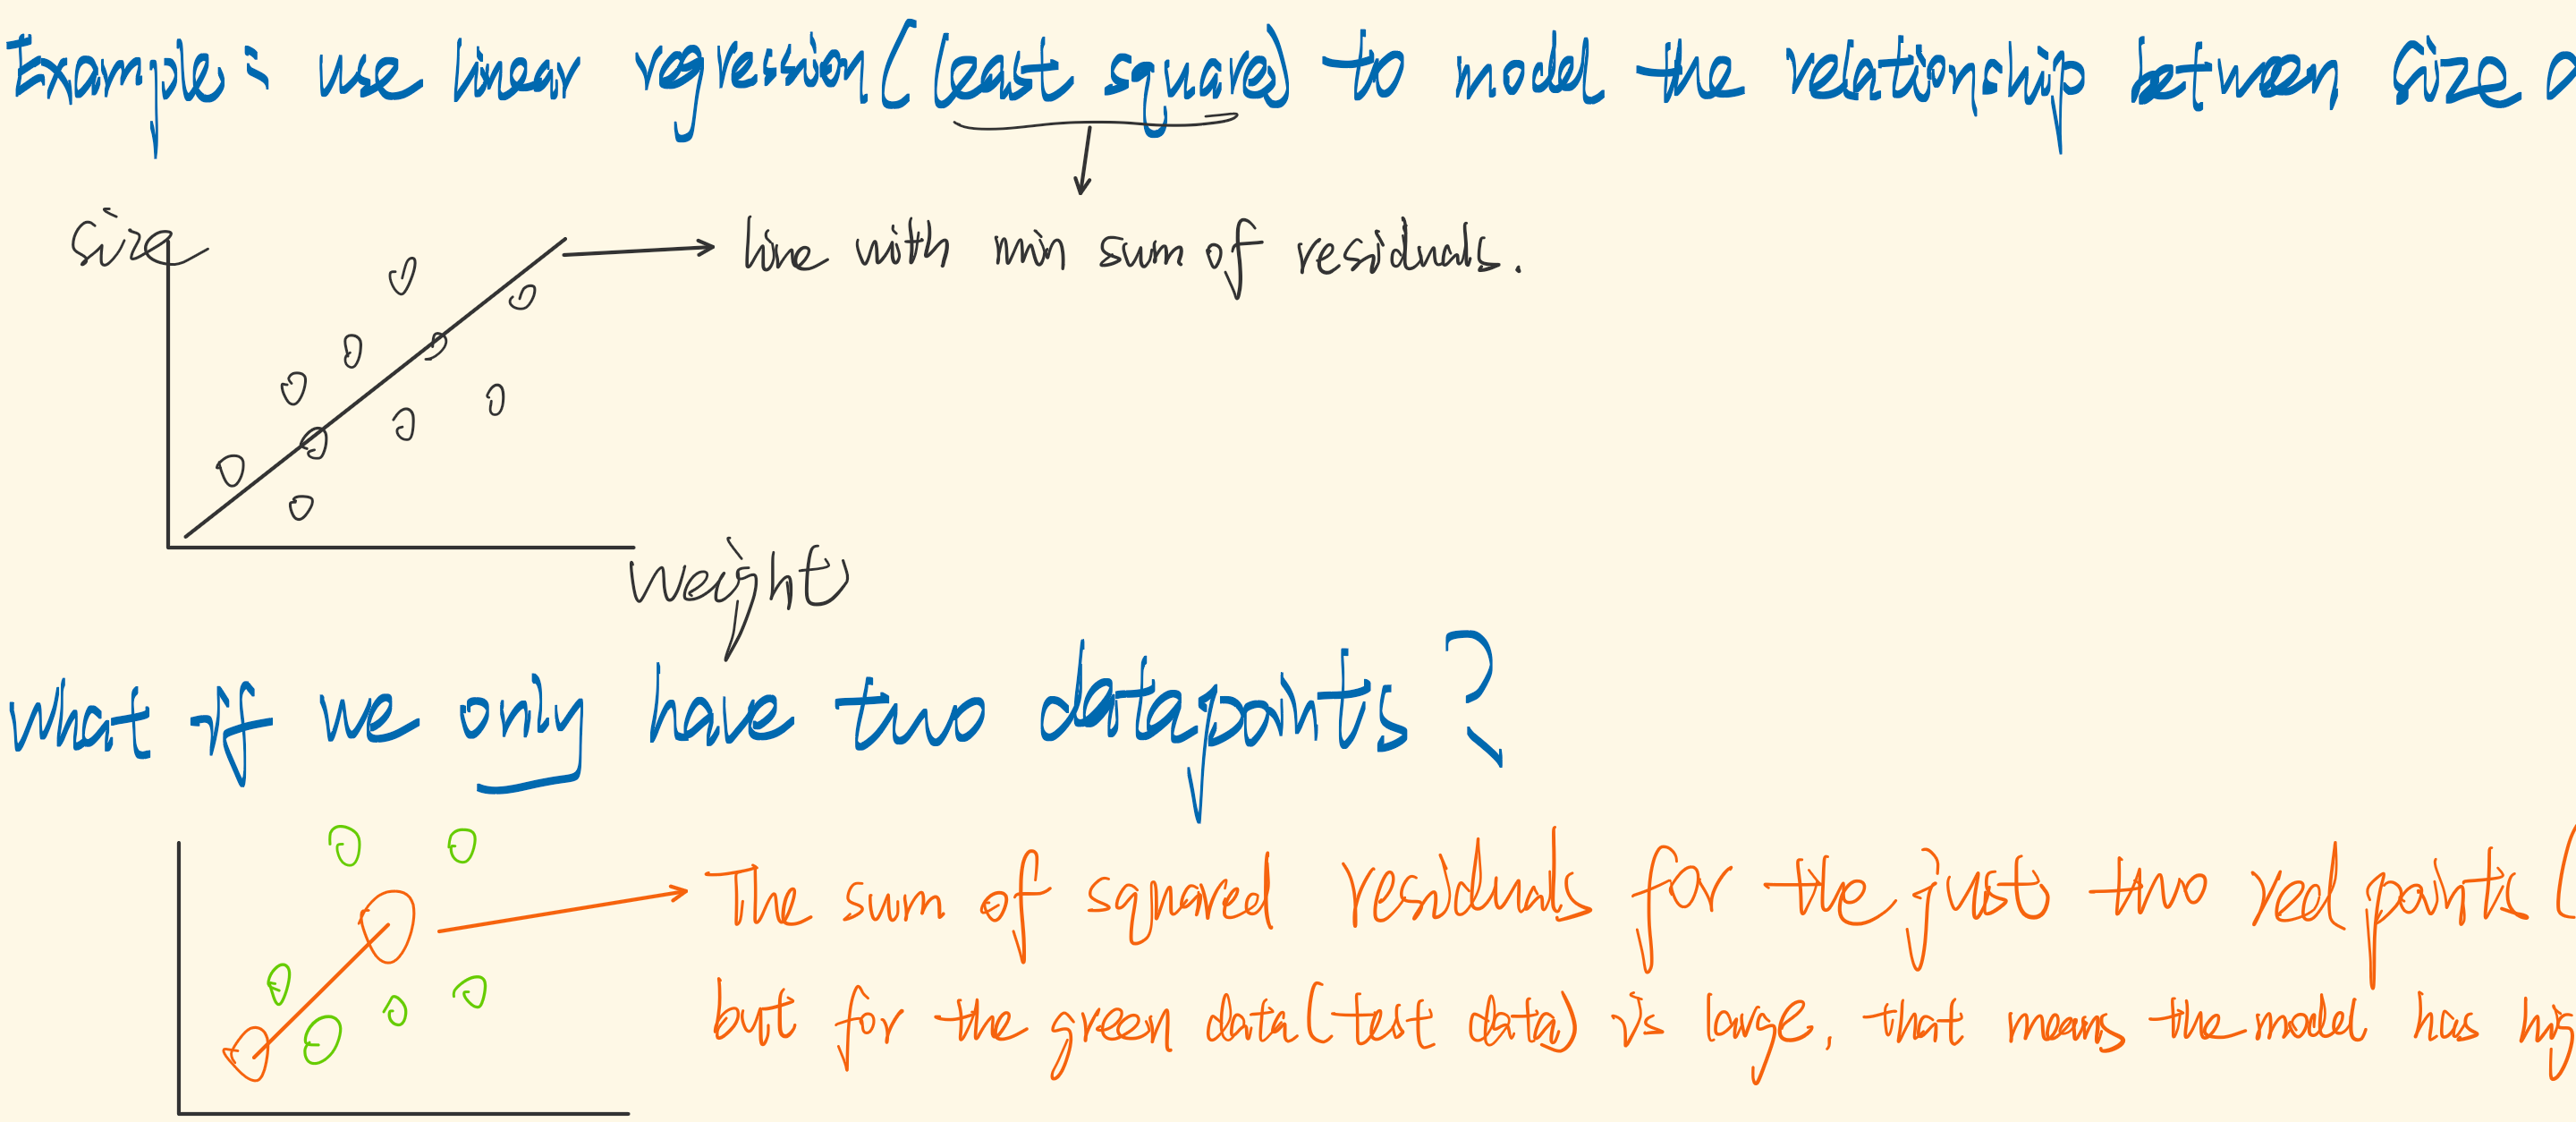 Example: use linear regression (least square) to model the relationship between size
size
line with min sum of residuals.
weight
what if we only have two datapoints?
The sum of squared residuals for the just two red points (
but for the green data (test data) is large, that means the model has